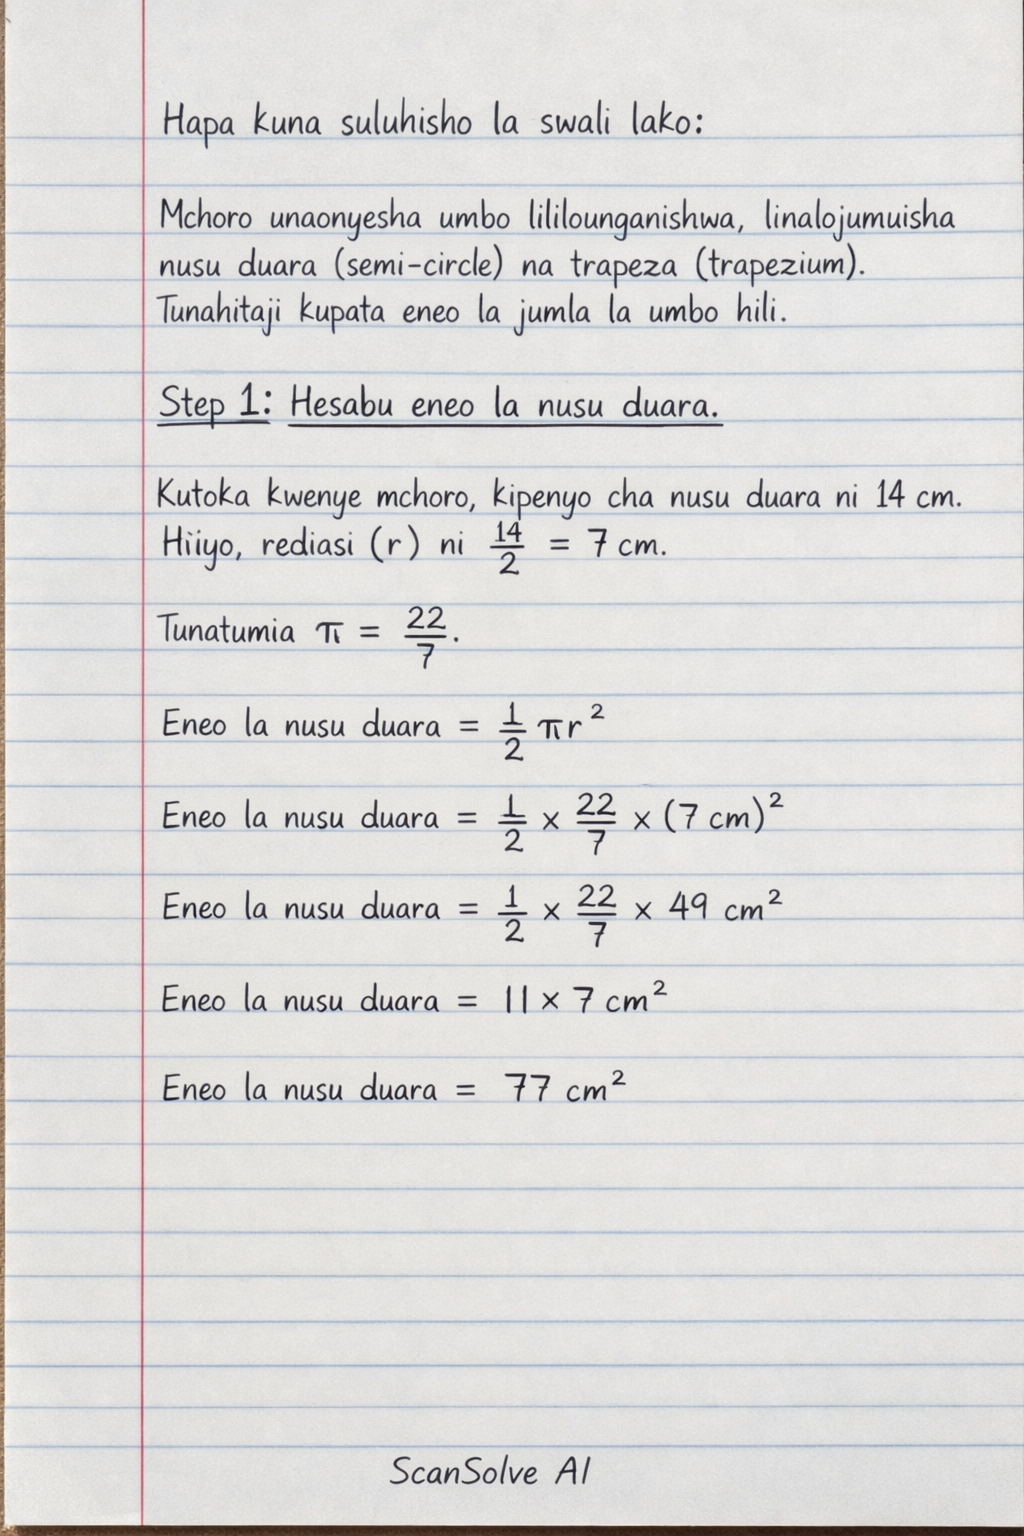 Hapa kuna suluhisho la swali lako:
Mchoro unaonyesha umbo lililounganishwa, linalojumuisha
nusu duara (semi-circle) na trapeza (trapezium).
Tunahitaji kupata eneo la jumla la umbo hili.
Step 1: Hesabu eneo la nusu duara.
Kutoka kwenye mchoro, kipenyo cha nusu duara ni 14 cm.
Hiiyo, rediasi (r) ni 14/2 = 7 cm.
Tunatumia π = 22/7.
Eneo la nusu duara = 1/2 πr²
Eneo la nusu duara = 1/2 × 22/7 × (7 cm)²
Eneo la nusu duara = 1/2 × 22/7 × 49 cm²
Eneo la nusu duara = 11 × 7 cm²
Eneo la nusu duara = 77 cm²
ScanSolve AI